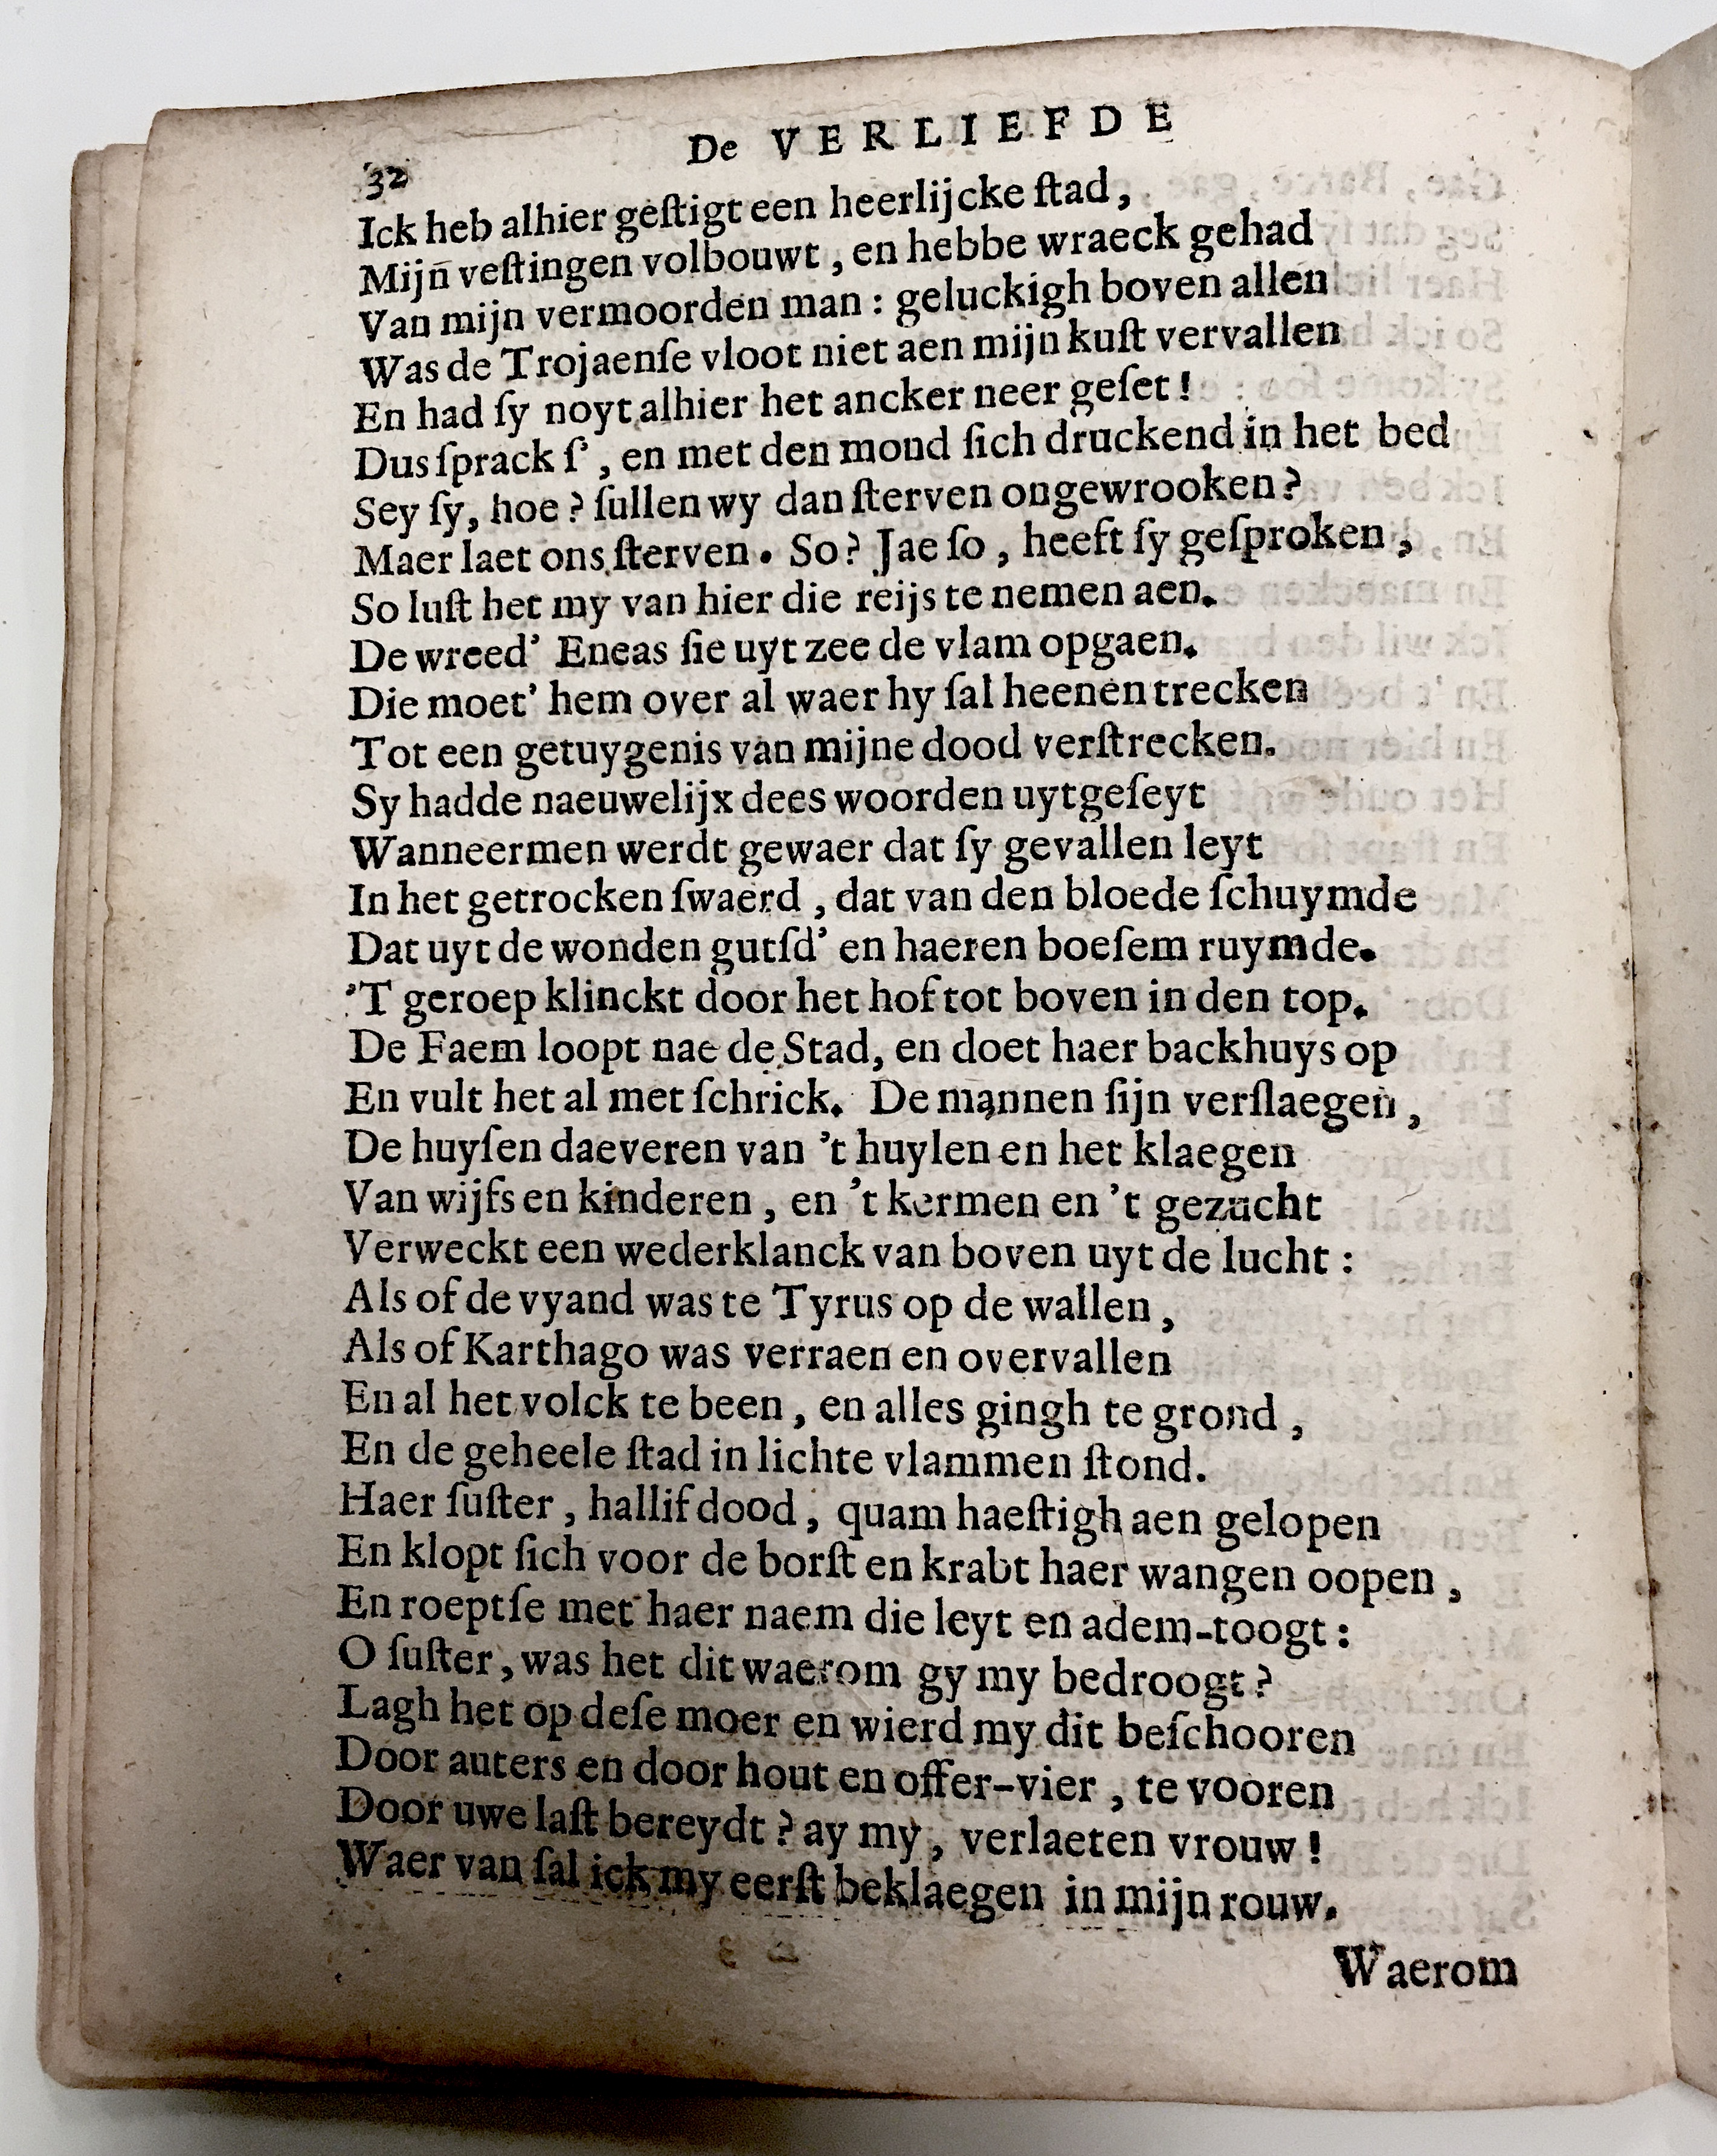 De VERLIEFDE
32
Ick heb alhier geſtigt een heerlijcke ſtad,
Mijn̄ veſtingen volbouwt, en hebbe wraeck gehad
Van mijn vermoorden man: geluckigh boven allen
Was de Trojaenſe vloot niet aen mijn kuſt vervallen
En had ſy noyt alhier het ancker neer geſet!
Dus ſprack ſ', en met den mond ſich druckend in het bed
Sey ſy, hoe? ſullen wy dan ſterven ongewrooken?
Maer laet ons ſterven. So? Jae ſo, heeft ſy geſproken,
So luſt het my van hier die reijs te nemen aen.
De wreed' Eneas ſie uyt zee de vlam opgaen.
Die moet' hem over al waer hy ſal heenen trecken
Tot een getuygenis van mijne dood verſtrecken.
Sy hadde naeuwelijx dees woorden uytgeſeyt
Wanneermen werdt gewaer dat ſy gevallen leyt
In het getrocken ſwaerd, dat van den bloede ſchuymde
Dat uyt de wonden gutſd' en haeren boeſem ruymde.
'T geroep klinckt door het hof tot boven in den top.
De Faem loopt nae de Stad, en doet haer backhuys op
En vult het al met ſchrick. De mannen ſijn verſlaegen,
De huyſen daeveren van 't huylen en het klaegen
Van wijfs en kinderen, en 't kermen en 't gezucht
Verweckt een wederklanck van boven uyt de lucht:
Als of de vyand was te Tyrus op de wallen,
Als of Karthago was verraen en overvallen
En al het volck te been, en alles gingh te grond,
En de geheele ſtad in lichte vlammen ſtond.
Haer ſuſter, hallif dood, quam haeſtigh aen gelopen
En klopt ſich voor de borſt en krabt haer wangen oopen,
En roeptſe met haer naem die leyt en adem-toogt:
O ſuſter, was het dit waerom gy my bedroogt?
Lagh het op deſe moer en wierd my dit beſchooren
Door auters en door hout en offer-vier, te vooren
Door uwe laſt bereydt? ay my, verlaeten vrouw!
Waer van ſal ick my eerſt beklaegen in mijn rouw.
Waerom